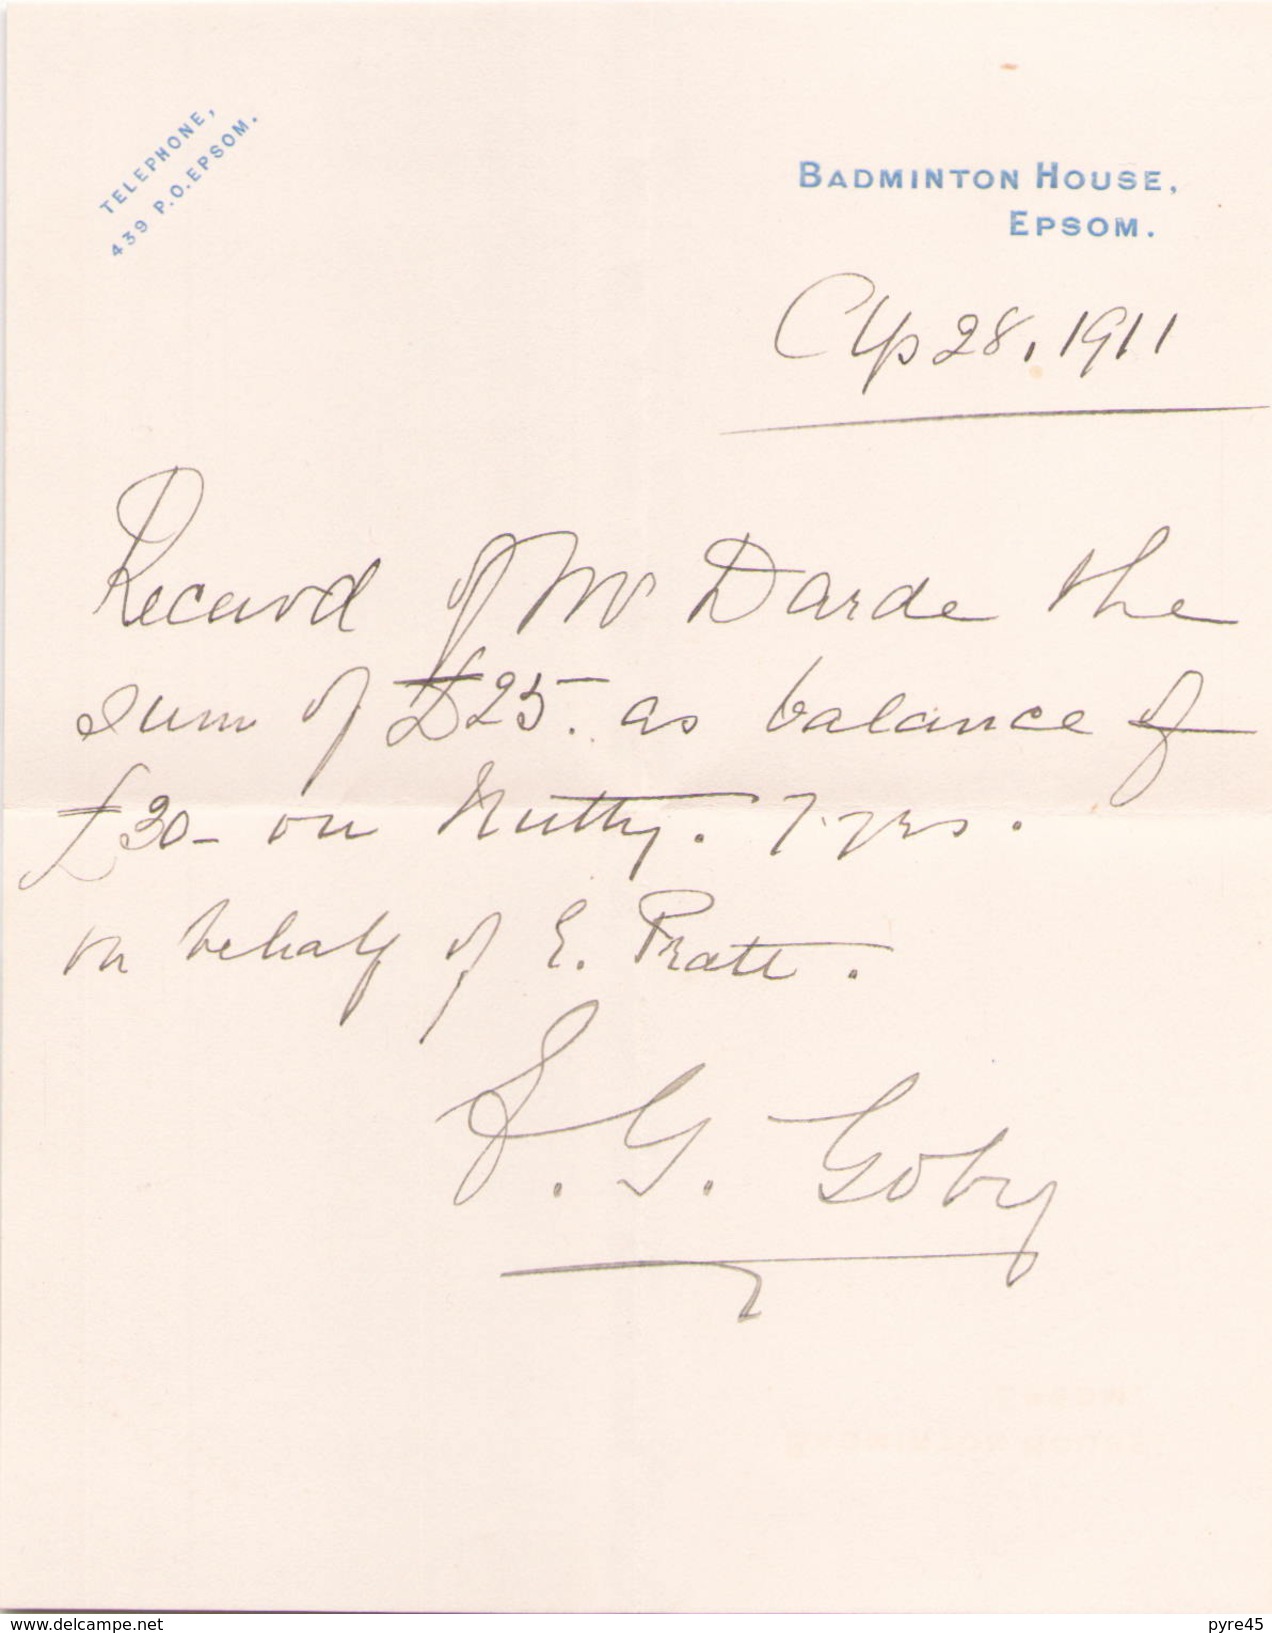 TELEPHONE,
439 P.O. EPSOM.
BADMINTON HOUSE,
EPSOM.
Ap 28, 1911
Receivd of Mr Darde the
sum of £25. as balance of
£30- on Nutty. 7 yrs.
on behalf of E. Pratt.
S. G. Goby
www.delcampe.net
pyre45